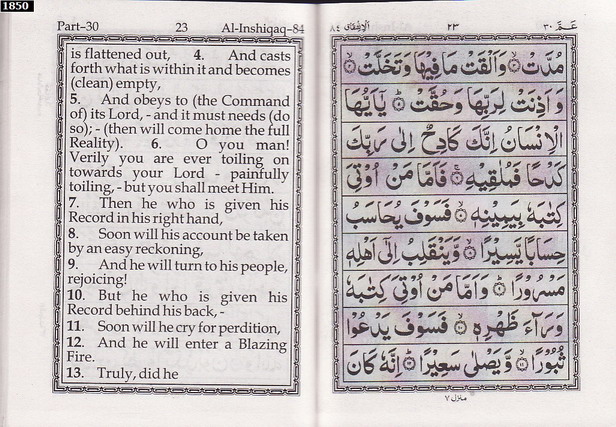 1850
Part-30 23 Al-Inshiqaq-84
is flattened out, 4. And casts
forth what is within it and becomes
(clean) empty,
5. And obeys to (the Command
of) its Lord, - and it must needs (do
so); - (then will come home the full
Reality). 6. O you man!
Verily you are ever toiling on
towards your Lord - painfully
toiling, - but you shall meet Him.
7. Then he who is given his
Record in his right hand,
8. Soon will his account be taken
by an easy reckoning,
9. And he will turn to his people,
rejoicing!
10. But he who is given his
Record behind his back, -
11. Soon will he cry for perdition,
12. And he will enter a Blazing
Fire.
13. Truly, did he
عـمّ ٣٠ ٢٣ الانشقاق ٨٤
مُدَّتْ ۝ وَاَلْقَتْ مَا فِيْهَا وَتَخَلَّتْ ۝
وَاَذِنَتْ لِرَبِّهَا وَحُقَّتْ ۝ يٰٓاَيُّهَا
الْاِنْسَانُ اِنَّكَ كَادِحٌ اِلٰى رَبِّكَ
كَدْحًا فَمُلٰقِيْهِ ۝ فَاَمَّا مَنْ اُوْتِيَ
كِتٰبَهٗ بِيَمِيْنِهٖ ۝ فَسَوْفَ يُحَاسَبُ
حِسَابًا يَّسِيْرًا ۝ وَّيَنْقَلِبُ اِلٰٓى اَهْلِهٖ
مَسْرُوْرًا ۝ وَاَمَّا مَنْ اُوْتِيَ كِتٰبَهٗ
وَرَآءَ ظَهْرِهٖ ۝ فَسَوْفَ يَدْعُوْا
ثُبُوْرًا ۝ وَّيَصْلٰى سَعِيْرًا ۝ اِنَّهٗ كَانَ
منزل ٧